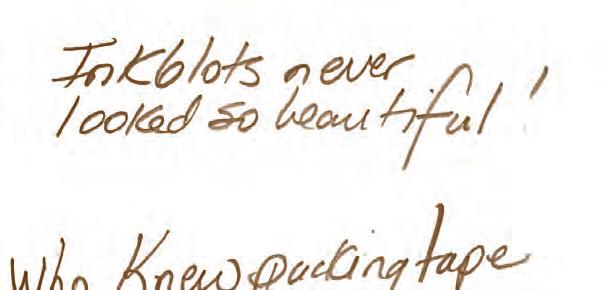 Inkblots never
looked so beautiful!
Who Knew packing tape